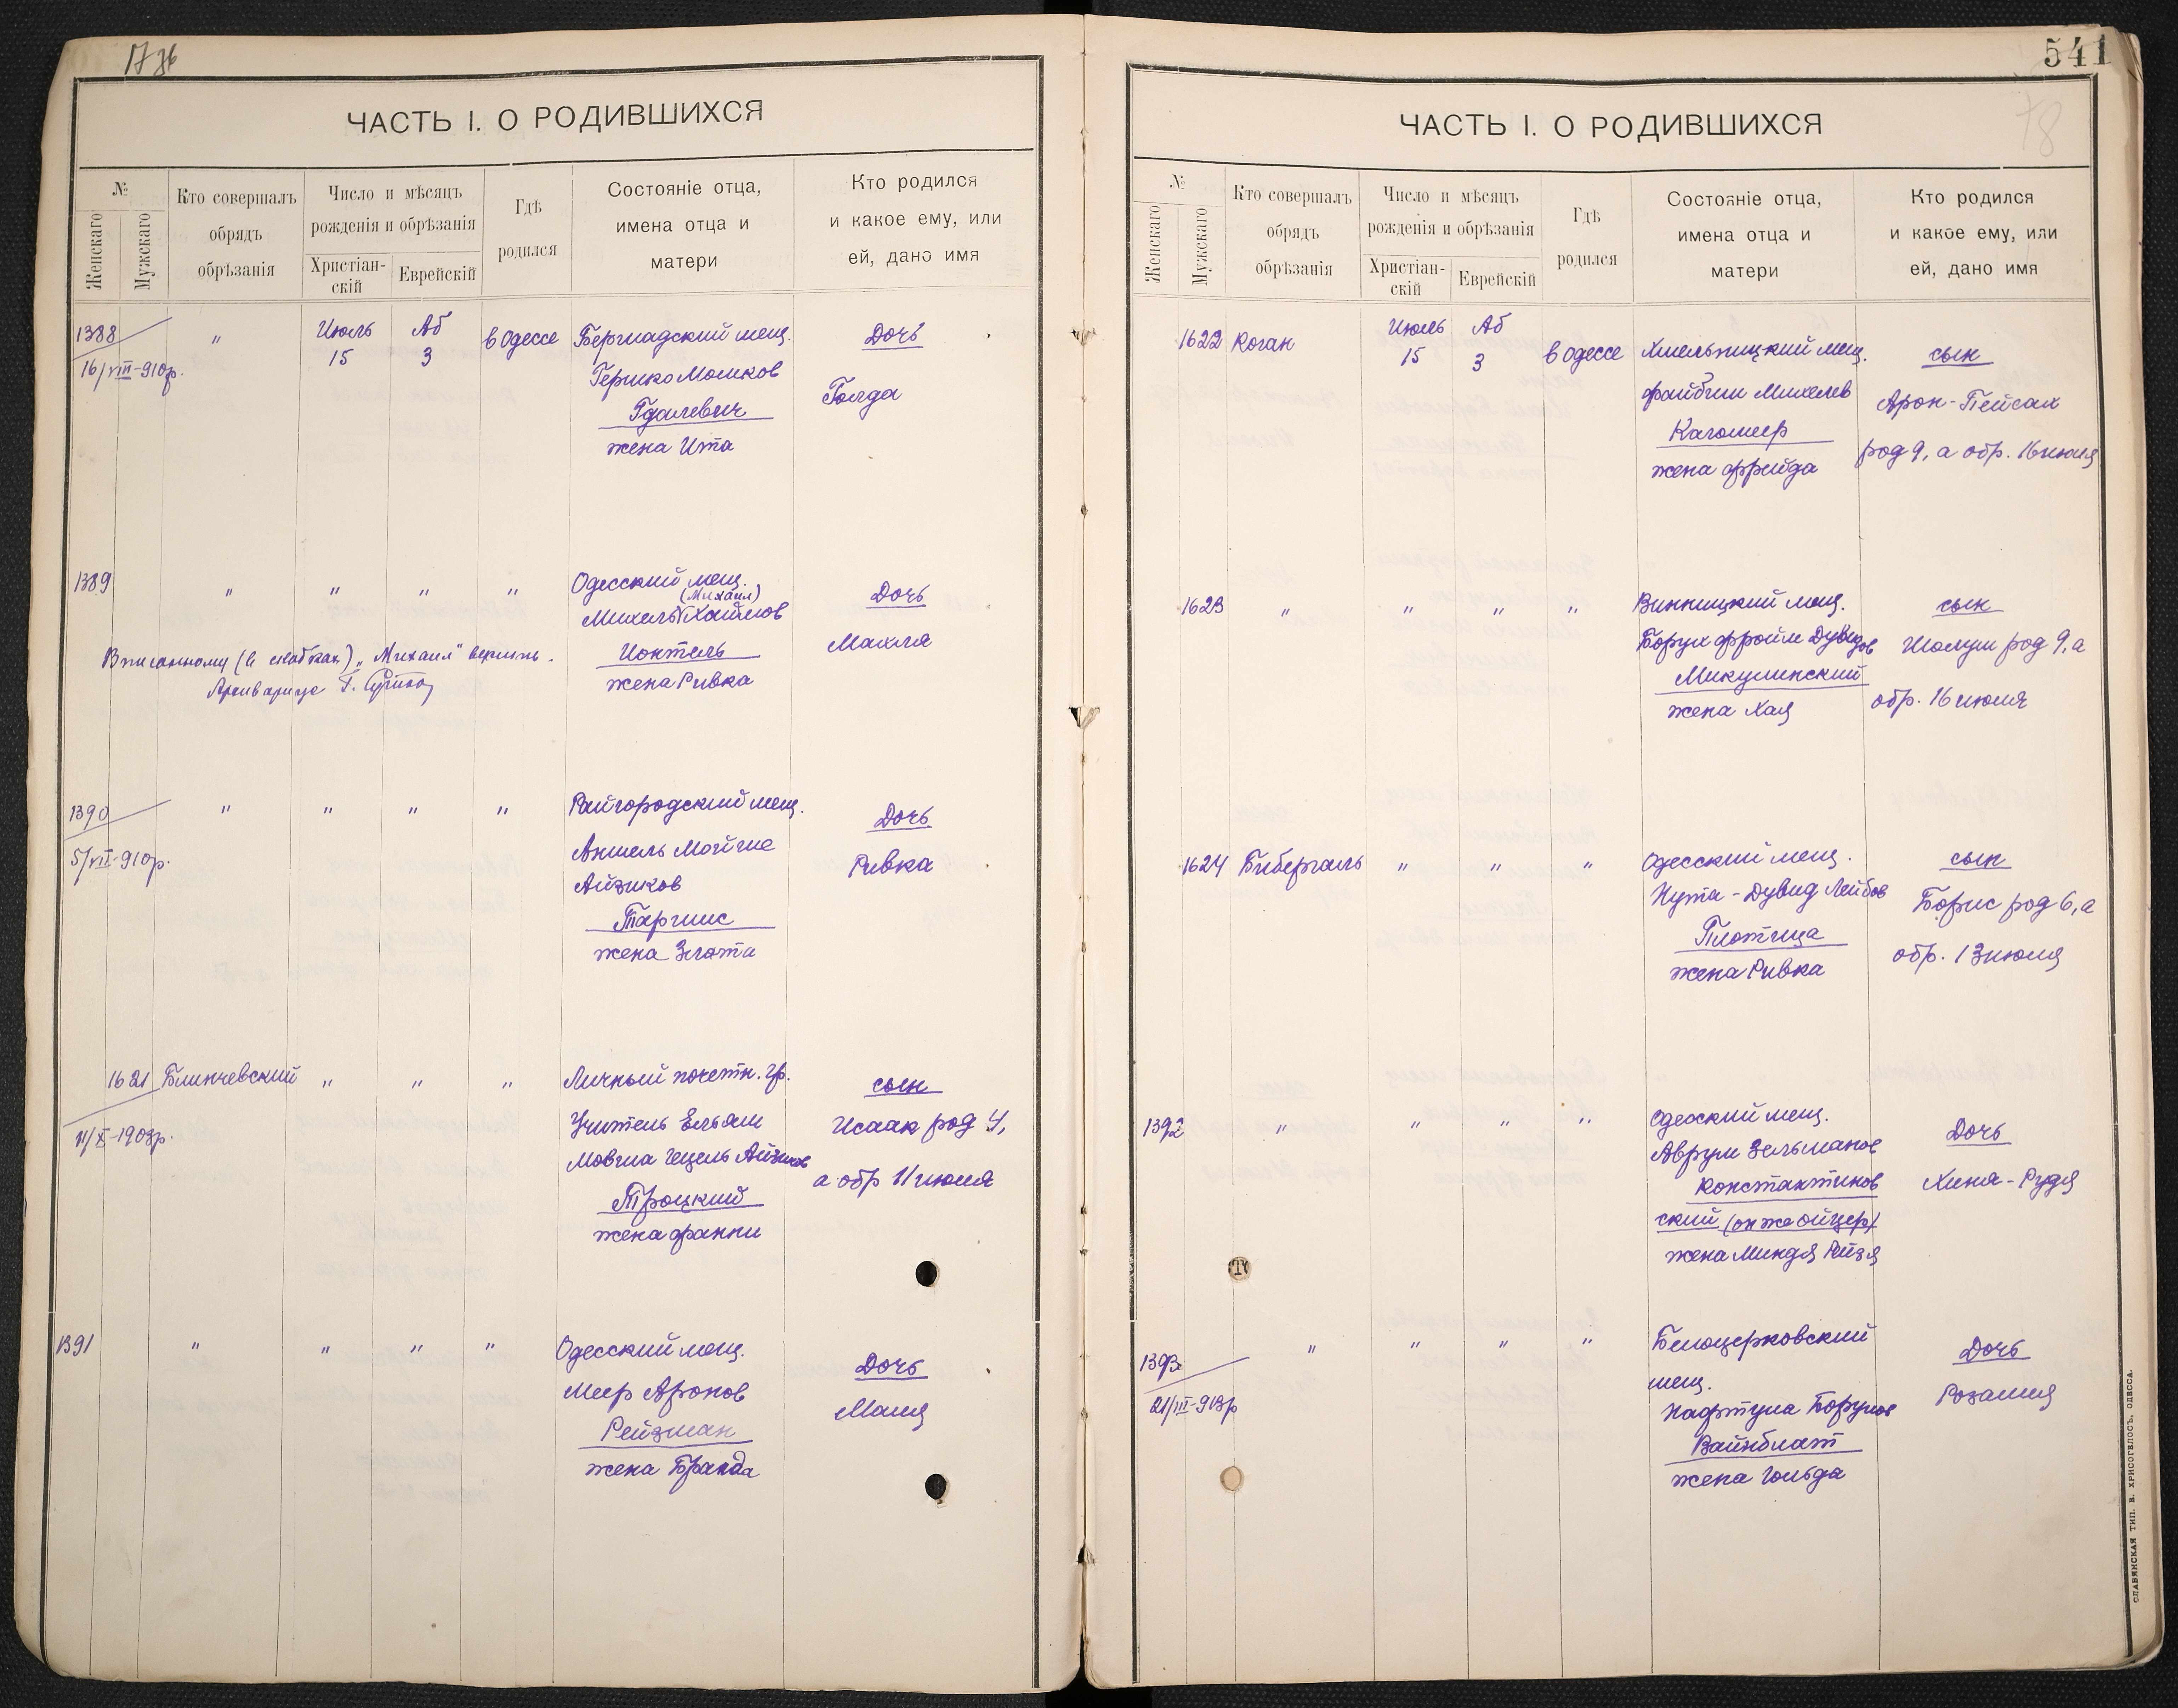 17 зв
ЧАСТЬ I. О РОДИВШИХСЯ
№
Женскаго
Мужскаго
Кто совершалъ
обрядъ
обрѣзанія
Число и мѣсяцъ
рожденія и обрѣзанія
Христіан-
скій
Еврейскій
Гдѣ
родился
Состояніе отца,
имена отца и
матери
Кто родился
и какое ему, или
ей, дано имя
1388 " Июль Аб в Одессе Бершадский мещ. Дочь
16/VIII-910р. 15 3 Гершко Мошков Голда
Гдалевич
жена Ита
1389 " " " " Одесский мещ. Дочь
(Михаил)
Михель Хаимов
Махля
Вписанному (в скобках) „Михаил" верить.
Иоктель
Архивариус Г.
жена Ривка
1390 " " " " Райгородский мещ. Дочь
5/VII-910р. Аншель Мойше Ривка
Айзиков
Таргшис
жена Злота
1621 Блинчевский " " " Личный почетн. гр. сын
11/X-1909р. Учитель Ельяш Исаак род 4,
Мовша Гецель Айзиков а обр 11 июля
Троцкий
жена Фанни
1391 " " " " Одесский мещ. Дочь
Меер Аронов Маня
Рейзман
жена Бранда
541
78
ЧАСТЬ I. О РОДИВШИХСЯ
№
Женскаго
Мужскаго
Кто совершалъ
обрядъ
обрѣзанія
Число и мѣсяцъ
рожденія и обрѣзанія
Христіан-
скій
Еврейскій
Гдѣ
родился
Состояніе отца,
имена отца и
матери
Кто родился
и какое ему, или
ей, дано имя
1622 Коган Июль Аб в Одессе Хмельницкий мещ. сын
15 3 Файбиш Михелев Арон-Пейсах
Кагошер род 9, а обр. 16 июля
жена Фрейда
1623 " " " " Винницкий мещ. сын
Борух Фройм Дувидов Шолум род 9, а
Микулинский обр. 16 июля
жена Хая
1624 Бибергаль " " " Одесский мещ. сын
Нута-Дувид Лейбов Борис род 6, а
Плотица обр. 13 июля
жена Ривка
1392 " " " " Одесский мещ. Дочь
Аврум Зельманов Хиня-Рудя
Константинов
ский (он же Ойцер)
жена Миндя Рейзя
1393 " " " " Белоцерковский Дочь
21/III-913р мещ. Розалия
Нафтула Борухов
Вайнблат
жена Гольда
СЛАВЯНСКАЯ ТИП. В. ХРИСОГЕЛОСЪ, ОДЕССА.